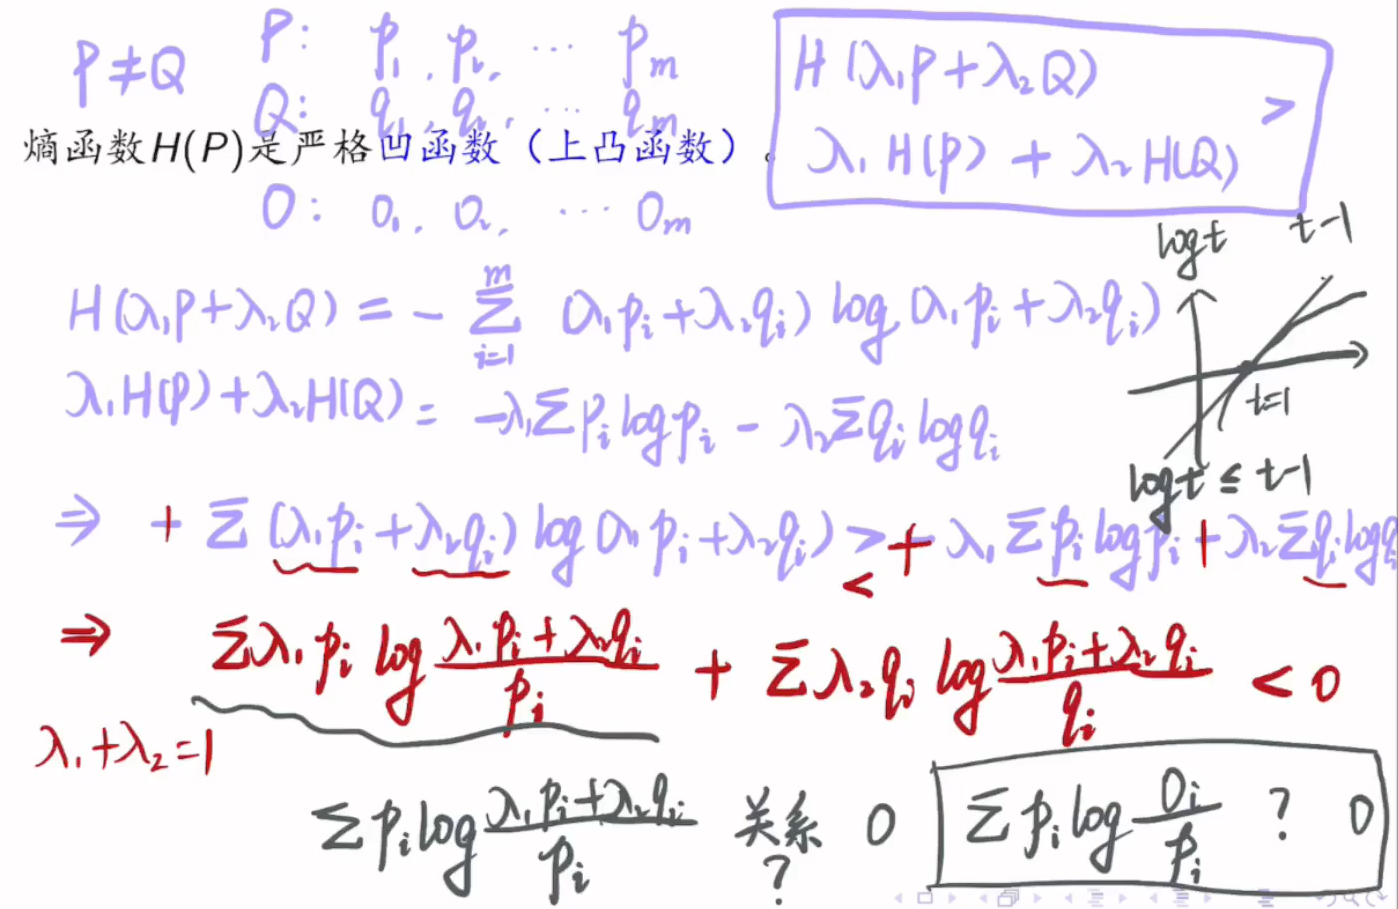 P≠Q
P: p₁, p₂, ⋯ pₘ
Q: q₁, q₂, ⋯ qₘ
熵函数H(P)是严格凹函数（上凸函数）。
O: O₁, O₂, ⋯ Oₘ
H(λ₁P+λ₂Q) >
λ₁H(P) + λ₂H(Q)
log t
t-1
t=1
log t ≤ t-1
H(λ₁P+λ₂Q) = - ∑ᵢ₌₁ᵐ (λ₁pᵢ+λ₂qᵢ) log(λ₁pᵢ+λ₂qᵢ)
λ₁H(P)+λ₂H(Q) = -λ₁∑pᵢ log pᵢ - λ₂∑qᵢ log qᵢ
⇒ + ∑(λ₁pᵢ+λ₂qᵢ) log(λ₁pᵢ+λ₂qᵢ) > + λ₁∑pᵢ log pᵢ + λ₂∑qᵢ log qᵢ
<
⇒ ∑λ₁pᵢ log (λ₁pᵢ+λ₂qᵢ)/pᵢ + ∑λ₂qᵢ log (λ₁pᵢ+λ₂qᵢ)/qᵢ < 0
λ₁+λ₂=1
∑pᵢ log (λ₁pᵢ+λ₂qᵢ)/pᵢ 关系? 0
∑pᵢ log Oᵢ/pᵢ ? 0